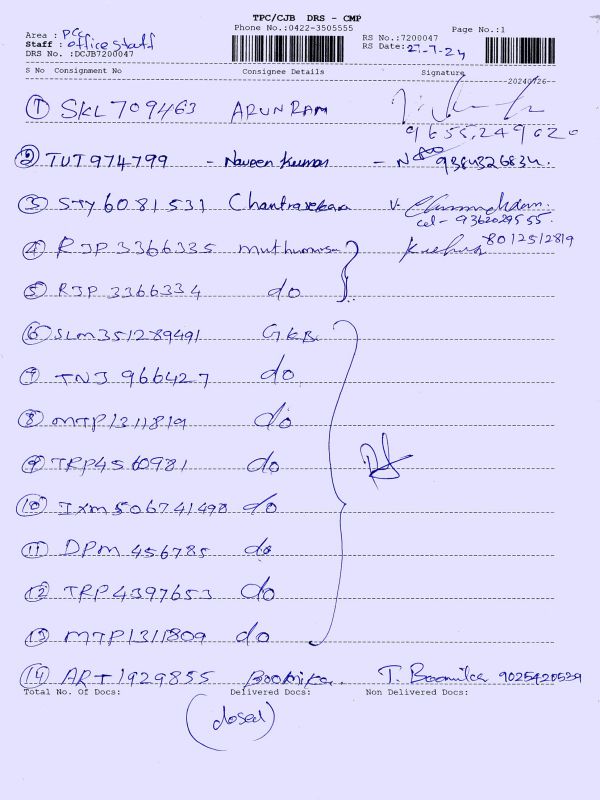 TPC/CJB DRS - CMP
Phone No.:0422-3505555
Area : PCC
Staff : office staff
DRS No. :DCJB7200047
RS No.:7200047
RS Date: 27-7-24
Page No.:1
S No Consignment No Consignee Details Signature
20240726
① SKL709463 ARUNRAM
9655249620
② TUT974799 - Naveen Kumar - 9384326834.
③ STY6081531 Chantrasekara V.
cel - 9362029555
④ RJP 3366335 muthumusa 8012512819
⑤ RJP 3366334 do
⑥ SLM351289491 GKB
⑦ TNJ 966427 do
⑧ MTP1311819 do
⑨ TRP4560981 do
⑩ IXM506741498 do
⑪ DPM 456785 do
⑫ TRP4397653 do
⑬ MTP1311809 do
⑭ ART1929855 Boomika. T. Boomika 9025420529
Total No. Of Docs: Delivered Docs: Non Delivered Docs:
(closed)